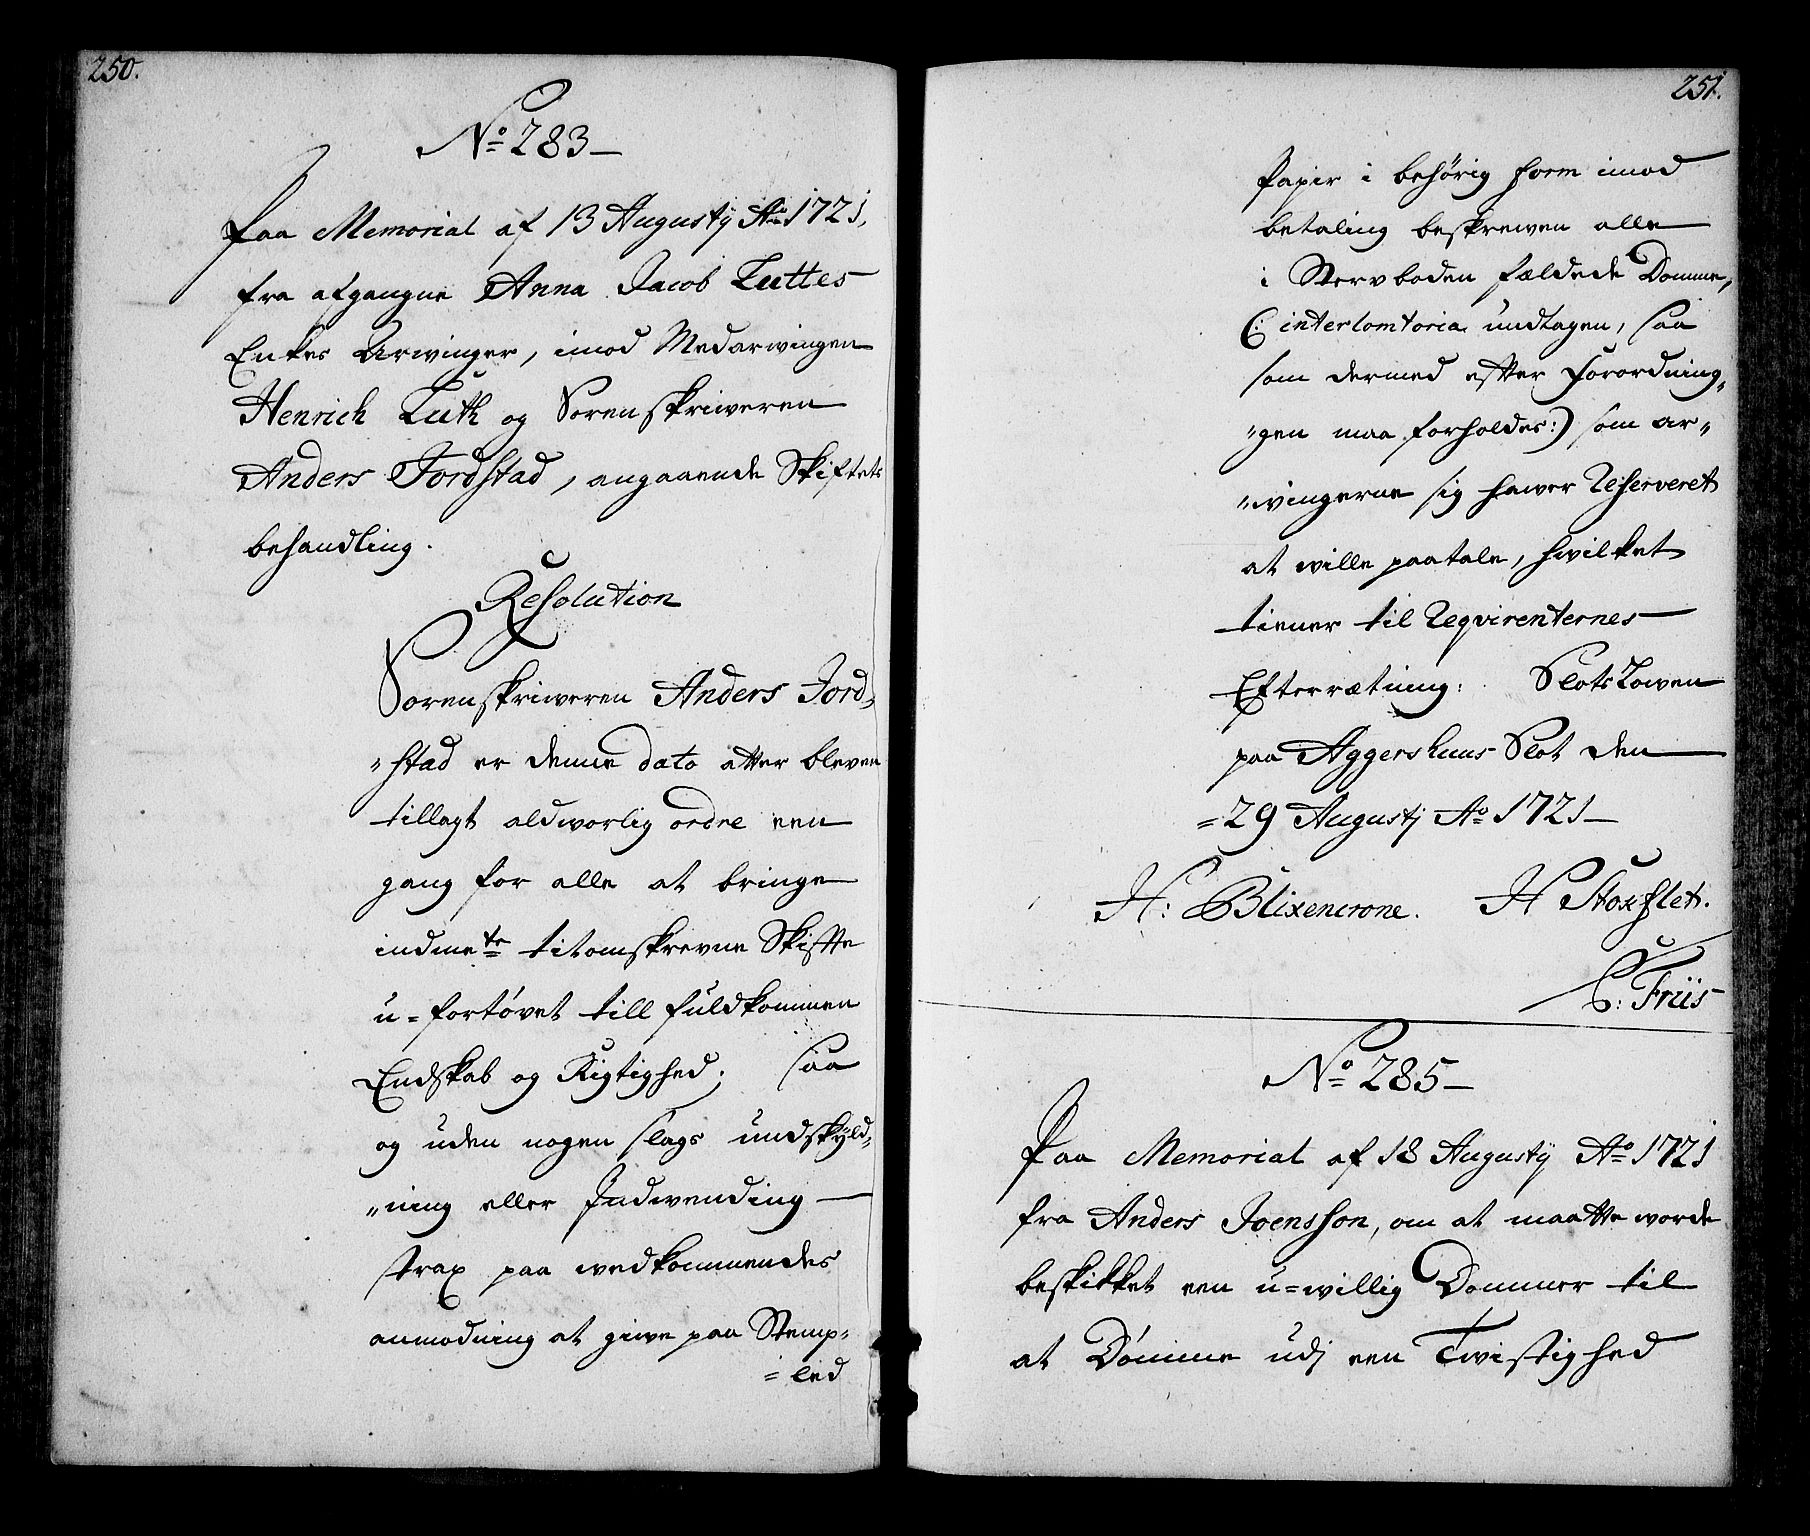 250.
No 283
Paa Memorial af 13 Augusty Ao 1721,
fra afgangne Anna Jacob Luttes
Enkes Arwinger, imod Medarwingen
Henrich Luth og Sorenskriweren
Anders Jordstad, angaaende Skiftets
behandling.
Resolution
Sorenskriweren Anders Jord,,
,,stad er denne dato atter bleven
tillagt aldworlig ordre een
gang for alle at bringe
indmelte titomskrevne Skifte
u=fortøvet till fuldkommen
Endskab og Rigtighed; saa
og uden nogen slags undskyld,,
,,ning eller Indwending
strax paa wedkommendes
anmodning at giwe paa Stemp,,
=led
251.
Papir i behørig form imod
betaling beskrewen alle
i Sterwboden fældede Domme,
(: interlomtoria undtagen, saa
som dermed efter Forordning,,
,,gen maa forholdes:) som ar,,
,,wingerne sig hawer Reserveret
at wille paatale, hwilket
tiener til Reqvirenternes
Efterrætning: SlotsLowen
paa Aggershuus Slot den
=29 Augustj Ao 1721
H: Blixencrone. H Stoxflet.
C: Friis
No 285
Paa Memorial af 18 Augusty Ao 1721
fra Anders Joensson, om at maatte worde
beskikket een u=willig Dommer til
at Dømme udj een Twistighed